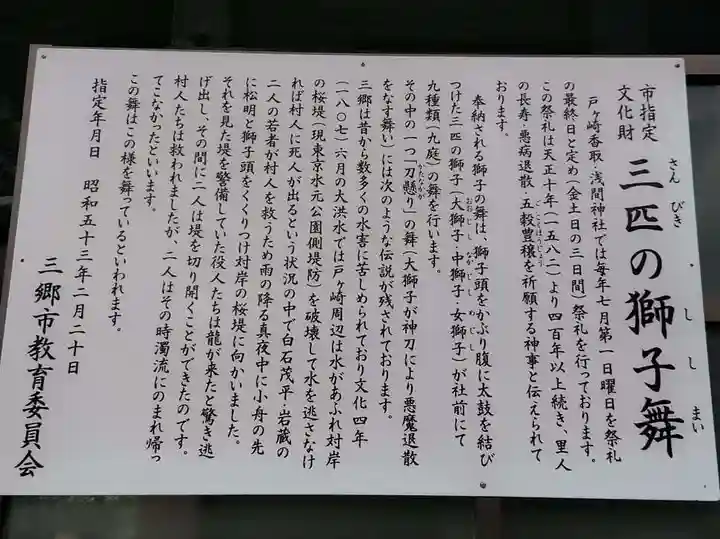 市指定
文化財
三匹の獅子舞
さん びき しし まい
戸ヶ崎香取・浅間神社では毎年七月第一日曜日を祭礼
の最終日と定め（金土日の三日間）祭礼を行っております。
この祭礼は天正十年（一五八二）より四百年以上続き、里人
の長寿・悪病退散・五穀豊穣を祈願する神事と伝えられて
ごこくほうじょう
おります。
奉納される獅子の舞は、獅子頭をかぶり腹に太鼓を結び
つけた三匹の獅子（大獅子・中獅子・女獅子）が社前にて
おおじし なかじし めじし
九種類（九庭）の舞を行います。
その中の一つ「刀懸り」の舞（大獅子が神刀により悪魔退散
かたながか
をなす舞い）には次のような伝説が残されております。
三郷は昔から数多くの水害に苦しめられており文化四年
（一八〇七）六月の大洪水では戸ヶ崎周辺は水があふれ対岸
の桜堤（現東京水元公園側堤防）を破壊して水を逃さなけ
れば村人に死人が出るという状況の中で白石茂平・岩蔵の
二人の若者が村人を救うため雨の降る真夜中に小舟の先
に松明と獅子頭をくくりつけ対岸の桜堤に向かいました。
それを見た堤を警備していた役人たちは龍が来たと驚き逃
げ出し、その間に二人は堤を切り開くことができたのです。
村人たちは救われましたが、二人はその時濁流にのまれ帰っ
てこなかったといいます。
この舞はこの様を舞っているといわれます。
指定年月日 昭和五十三年二月二十日
三郷市教育委員会